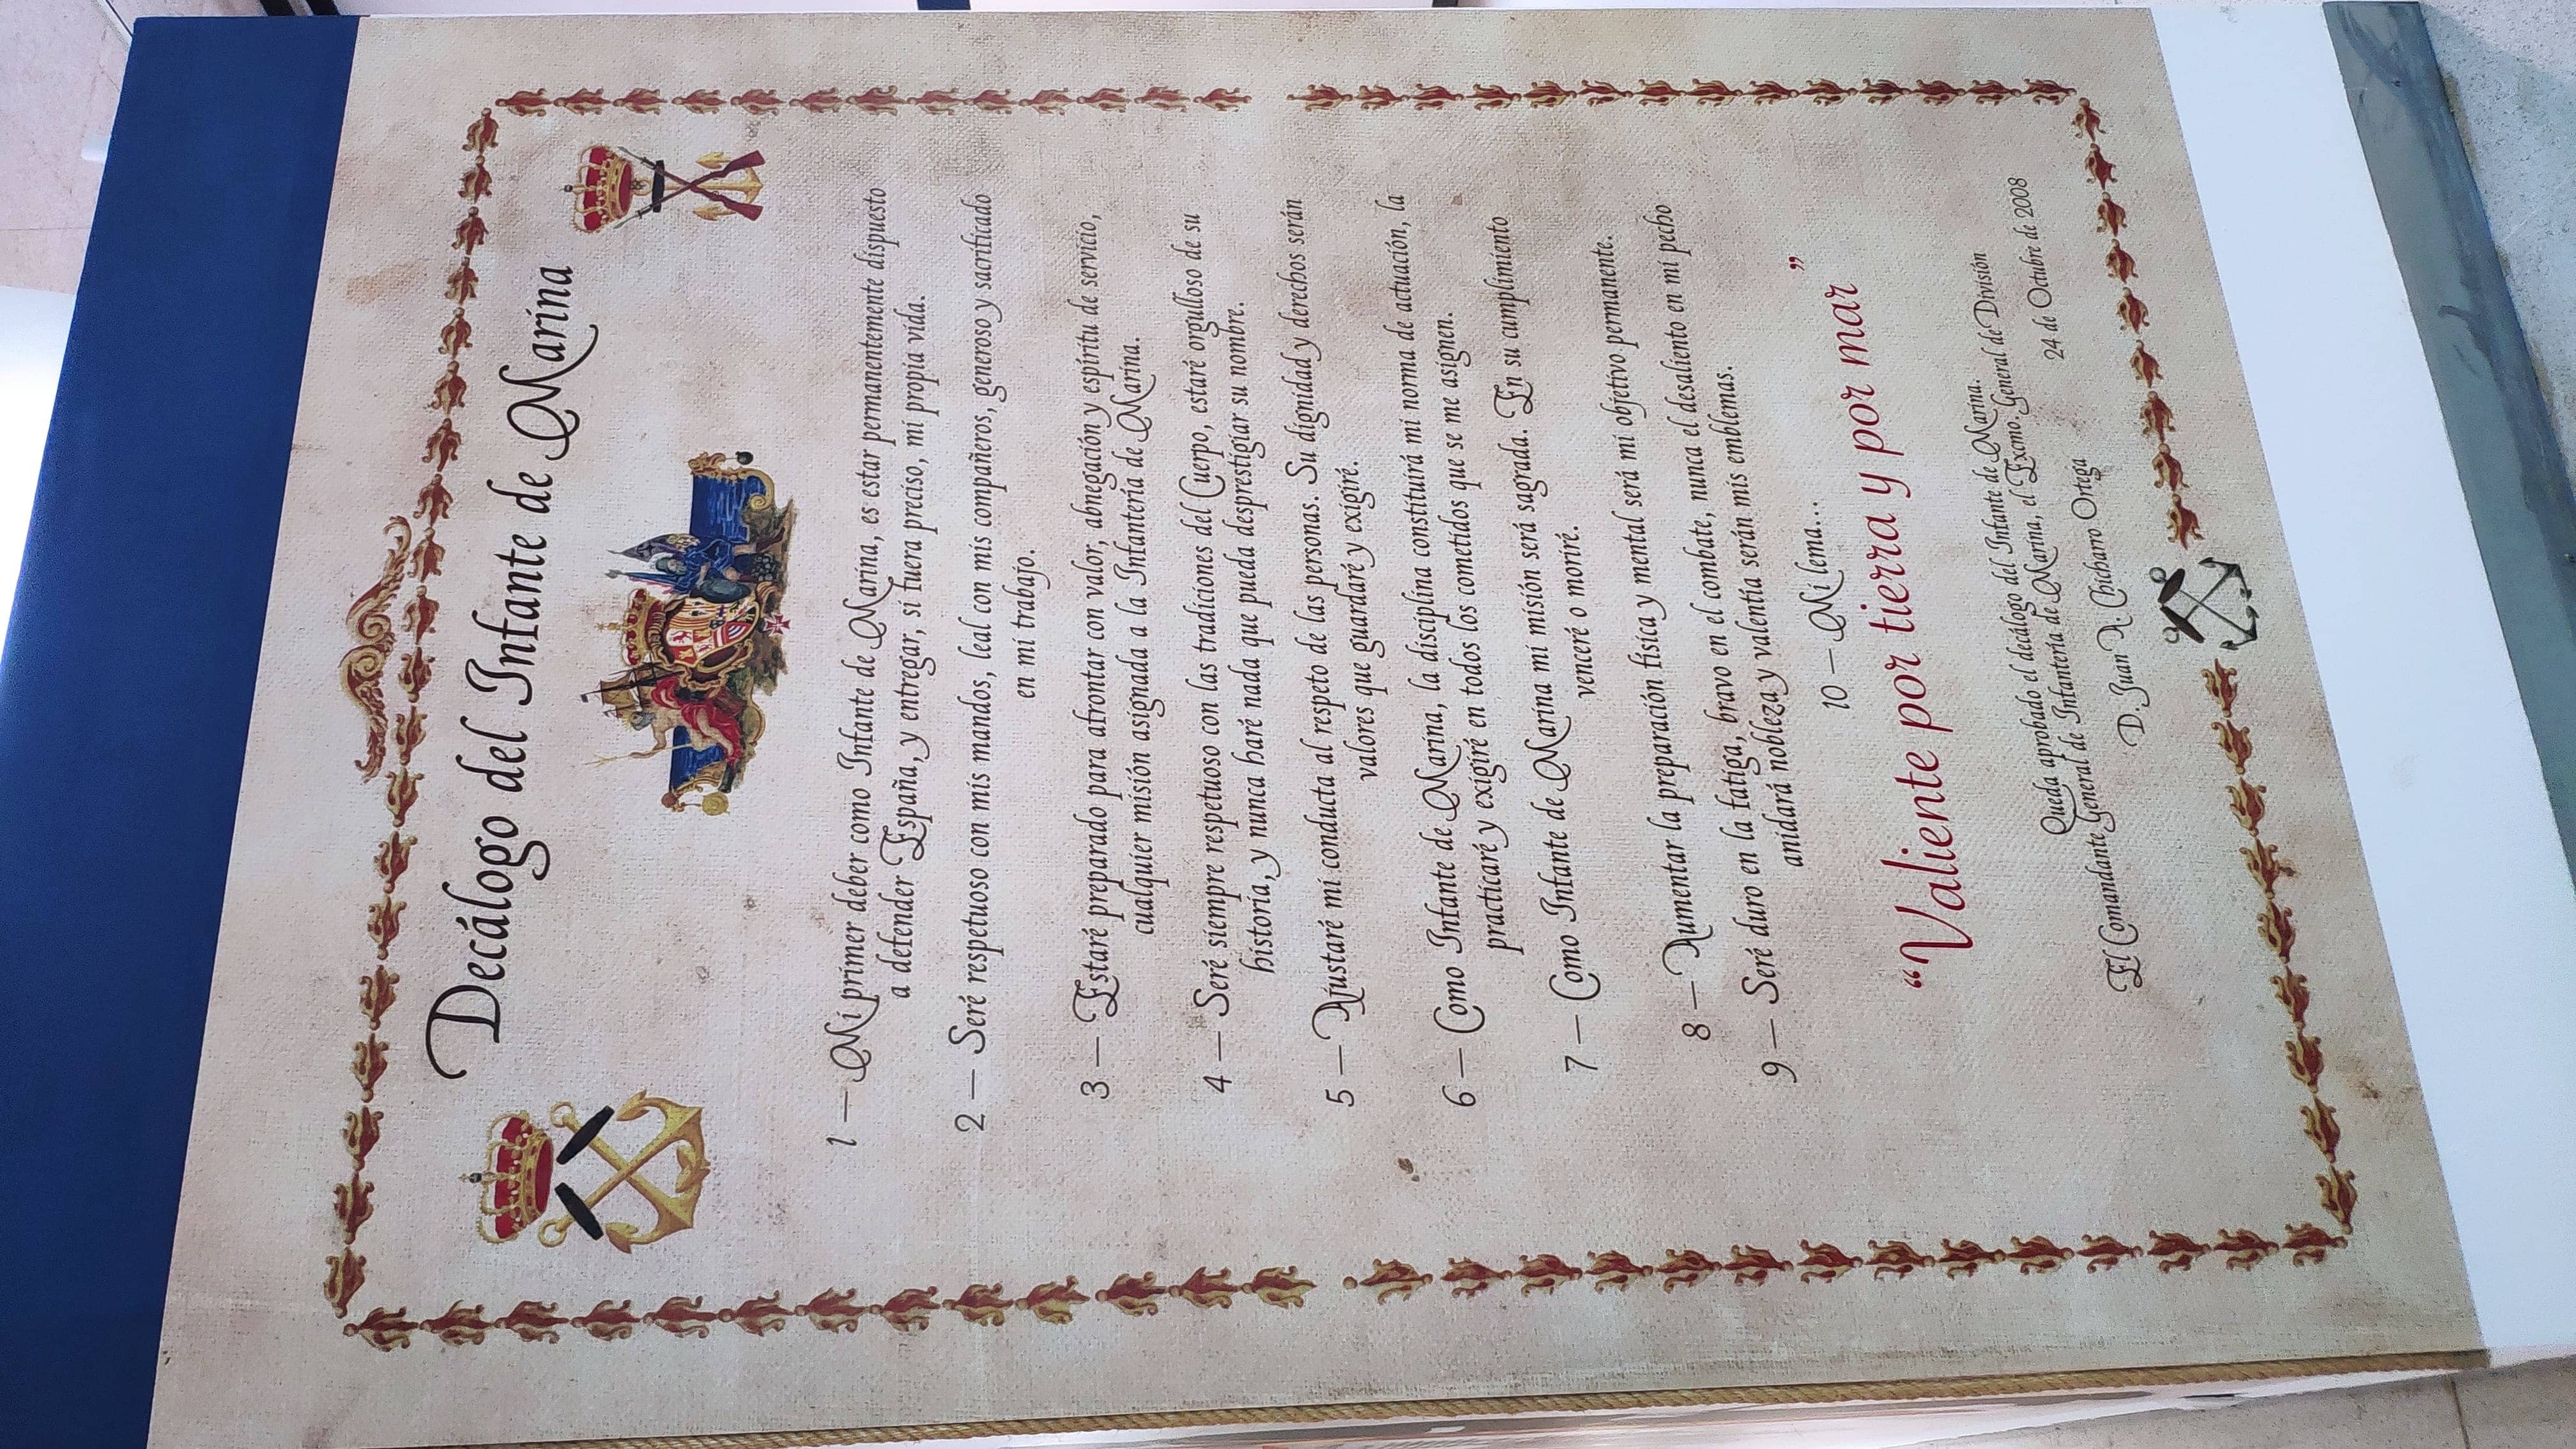 Decálogo del Infante de Marina
1 – Mi primer deber como Infante de Marina, es estar permanentemente dispuesto
a defender España, y entregar, si fuera preciso, mi propia vida.
2 – Seré respetuoso con mis mandos, leal con mis compañeros, generoso y sacrificado
en mi trabajo.
3 – Estaré preparado para afrontar con valor, abnegación y espíritu de servicio,
cualquier misión asignada a la Infantería de Marina.
4 – Seré siempre respetuoso con las tradiciones del Cuerpo, estaré orgulloso de su
historia, y nunca haré nada que pueda desprestigiar su nombre.
5 – Ajustaré mi conducta al respeto de las personas. Su dignidad y derechos serán
valores que guardaré y exigiré.
6 – Como Infante de Marina, la disciplina constituirá mi norma de actuación, la
practicaré y exigiré en todos los cometidos que se me asignen.
7 – Como Infante de Marina mi misión será sagrada. En su cumplimiento
venceré o moriré.
8 – Aumentar la preparación física y mental será mi objetivo permanente.
9 – Seré duro en la fatiga, bravo en el combate, nunca el desaliento en mi pecho
anidará nobleza y valentía serán mis emblemas.
10 – Mi lema...
“Valiente por tierra y por mar”
Queda aprobado el decálogo del Infante de Marina.
El Comandante General de Infantería de Marina, el Excmo. General de División
D. Juan A. Chicharro Ortega
24 de Octubre de 2008